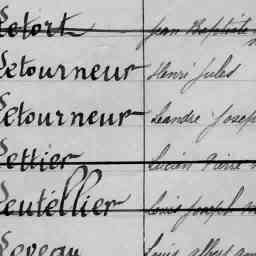 Letort Jean Baptiste
Letourneur Henri Jules
Letourneur Léandre Josep
Lettier Lucien Pierre
Leutéllier Louis Joseph
Leveau Louis Albert